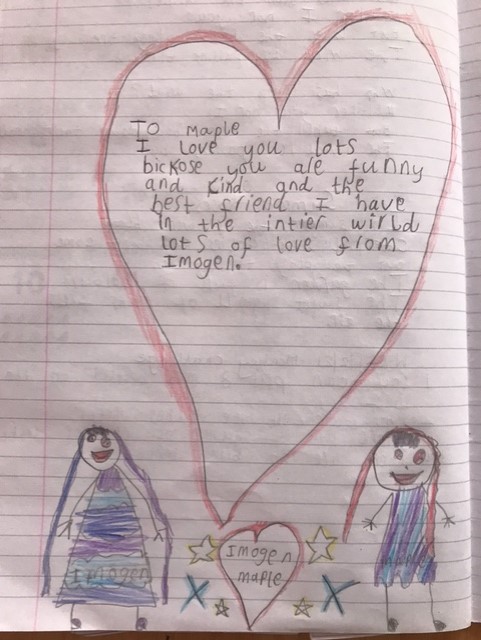 To Maple
I love you lots
bickose you are funny
and kind and the
best friend I have
in the intier wirld
lots of love from
Imogen.
Imogen
maple
Imogen
maple